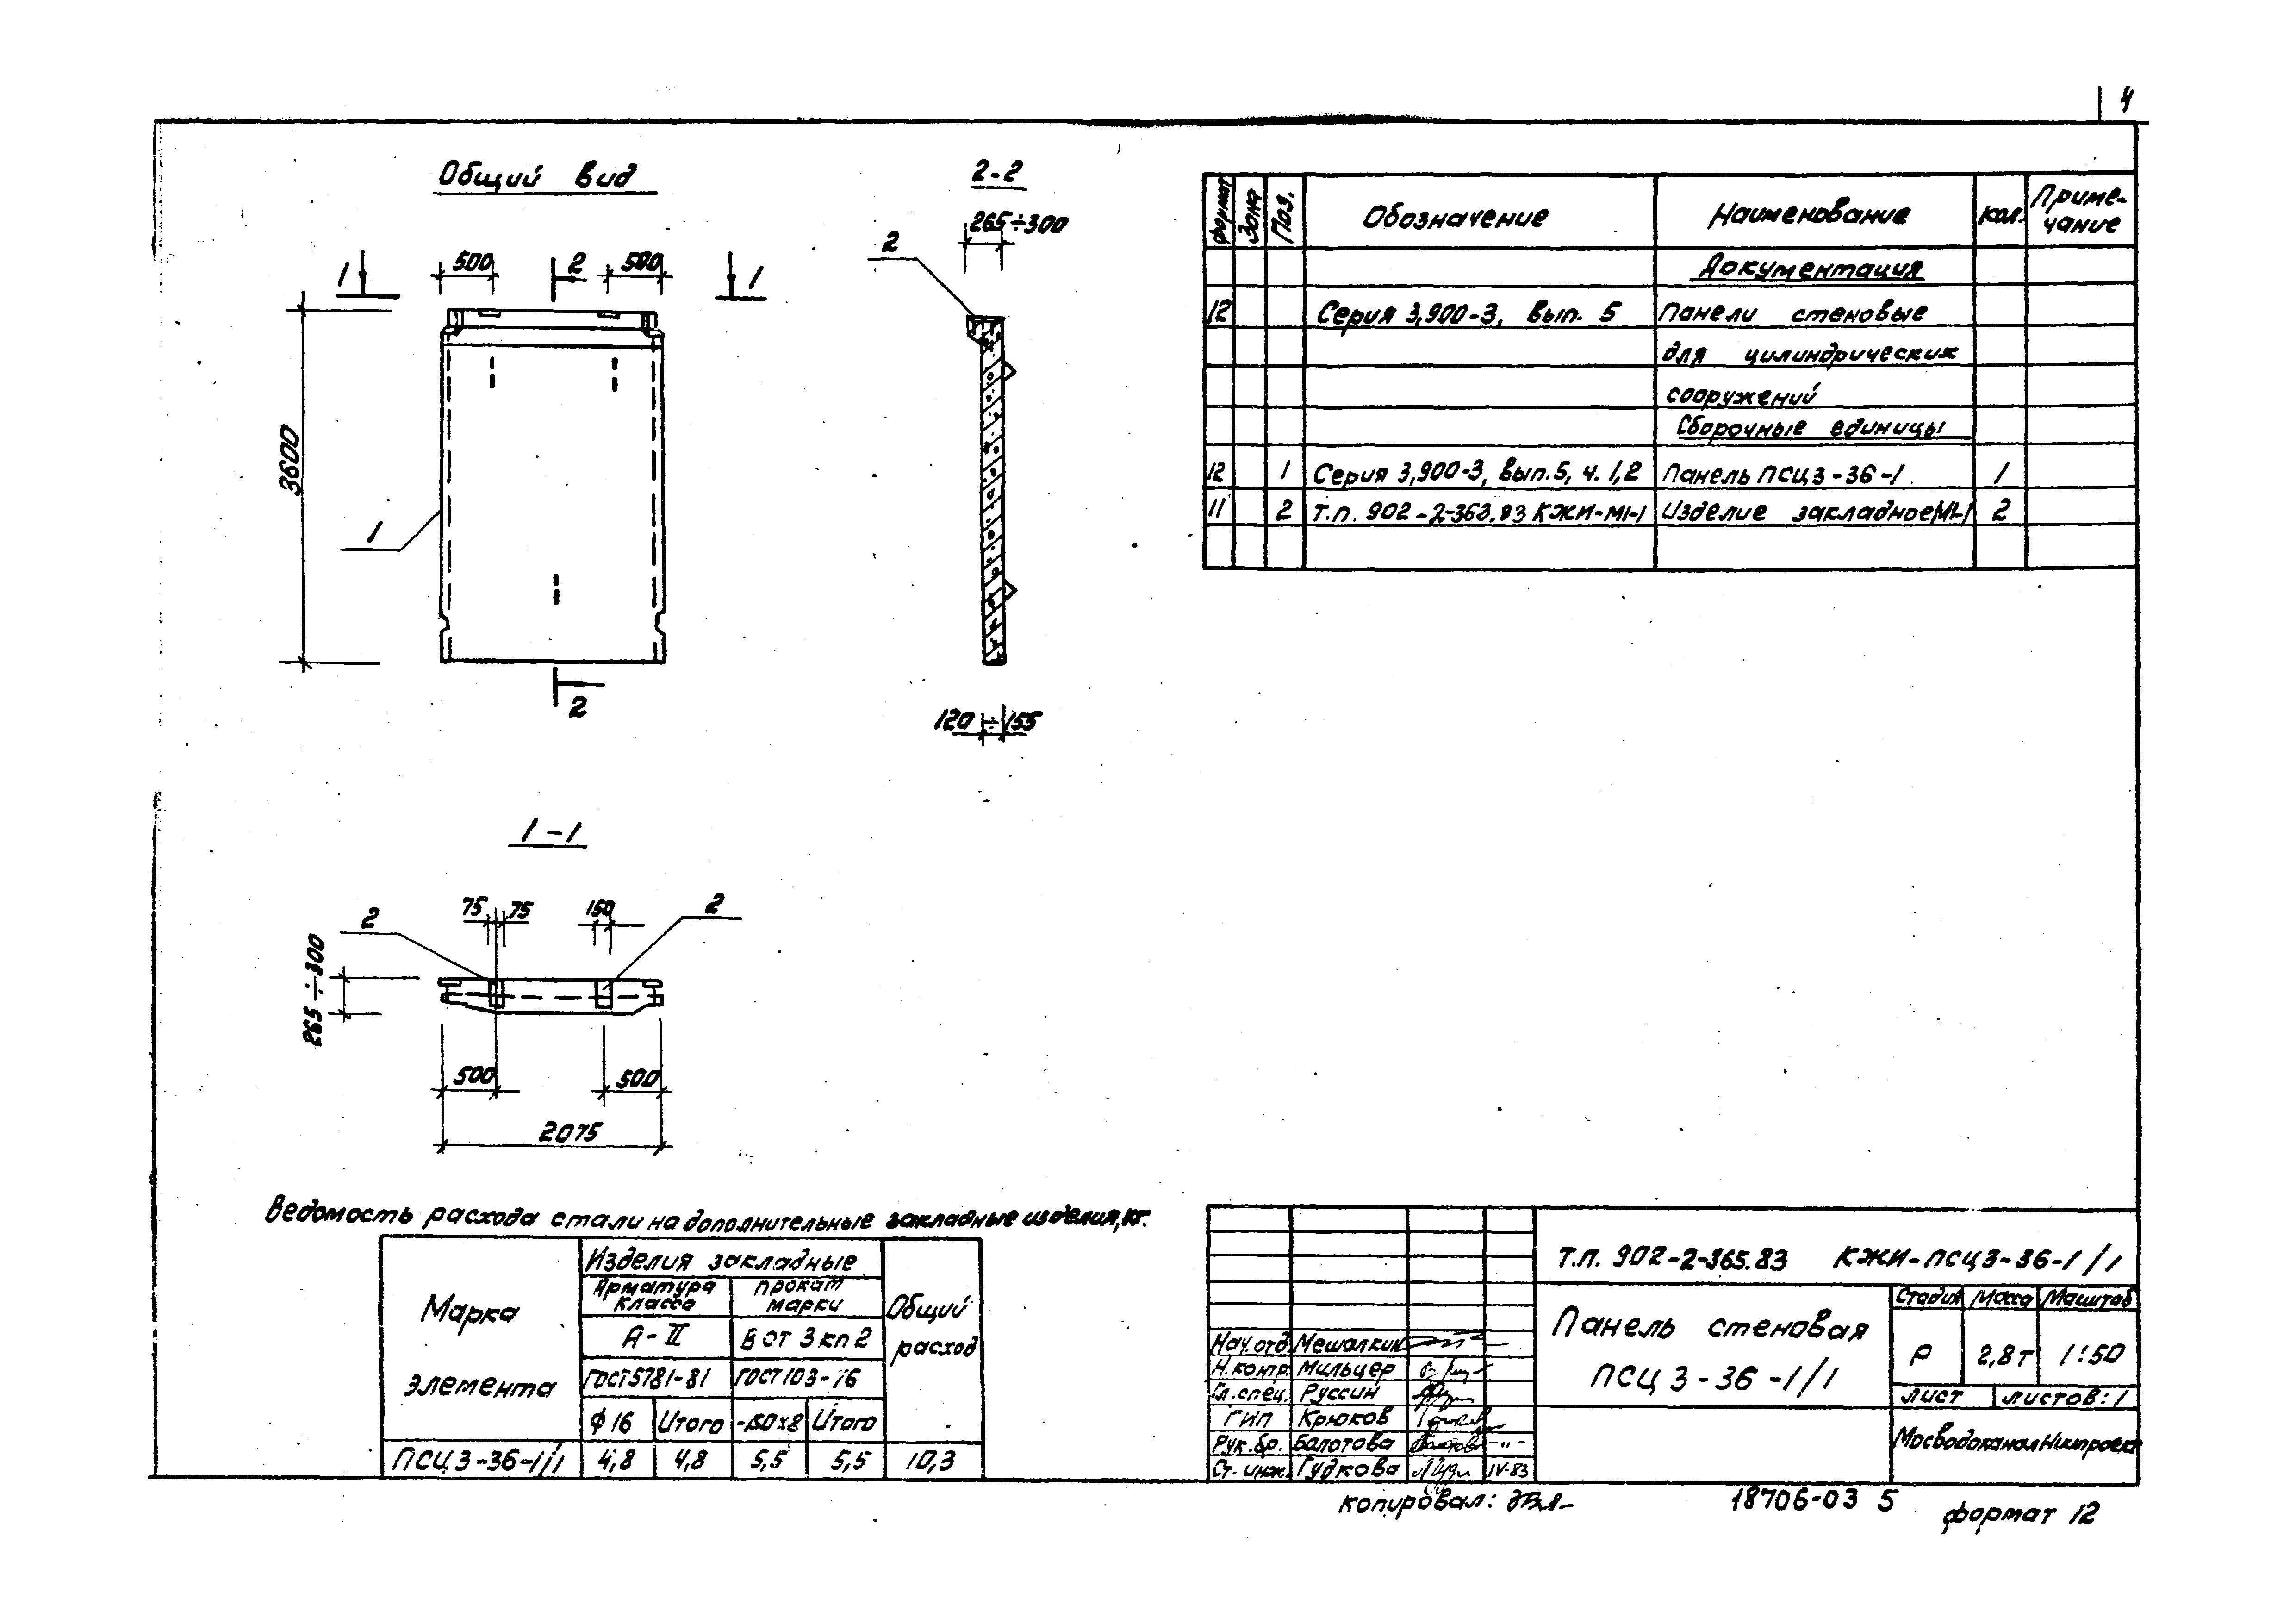 4
Общий вид
2-2
265÷300
2
1
500
2
500
1
3600
1
2
120÷155
1-1
2
75
75
150
2
265÷300
500
500
2075
формат
Зона
Поз.
Обозначение
Наименование
Кол.
Приме-
чание
Документация
12 Серия 3.900-3, вып. 5 Панели стеновые
для цилиндрических
сооружений
Сборочные единицы
12 1 Серия 3.900-3, вып. 5, ч. 1,2 Панель ПСЦ3-36-1 1
11 2 т.п. 902-2-363.83 КЖИ-М1-1 Изделие закладное М1-1 2
Ведомость расхода стали на дополнительные закладные изделия, кг.
Марка
элемента
Изделия закладные
Арматура
класса
прокат
марки
Общий
расход
А-II
В ст 3 кп 2
ГОСТ 5781-81
ГОСТ 103-76
ф 16
Итого
-150х8
Итого
ПСЦ 3-36-1/1 4,8 4,8 5,5 5,5 10,3
Т.п. 902-2-365.83 КЖИ-ПСЦ3-36-1/1
Панель стеновая
ПСЦ 3-36-1/1
Стадия Масса Масштаб
Р 2,8т 1:50
лист листов: 1
МосводоканалНИИпроект
Нач. отд. Мешалкин
Н. контр. Мильцер
Гл. спец. Руссин
ГИП Крюков
Рук. бр. Болотова -"-
Ст. инж. Гудкова IV-83
копировал:
18706-03 5
формат 12